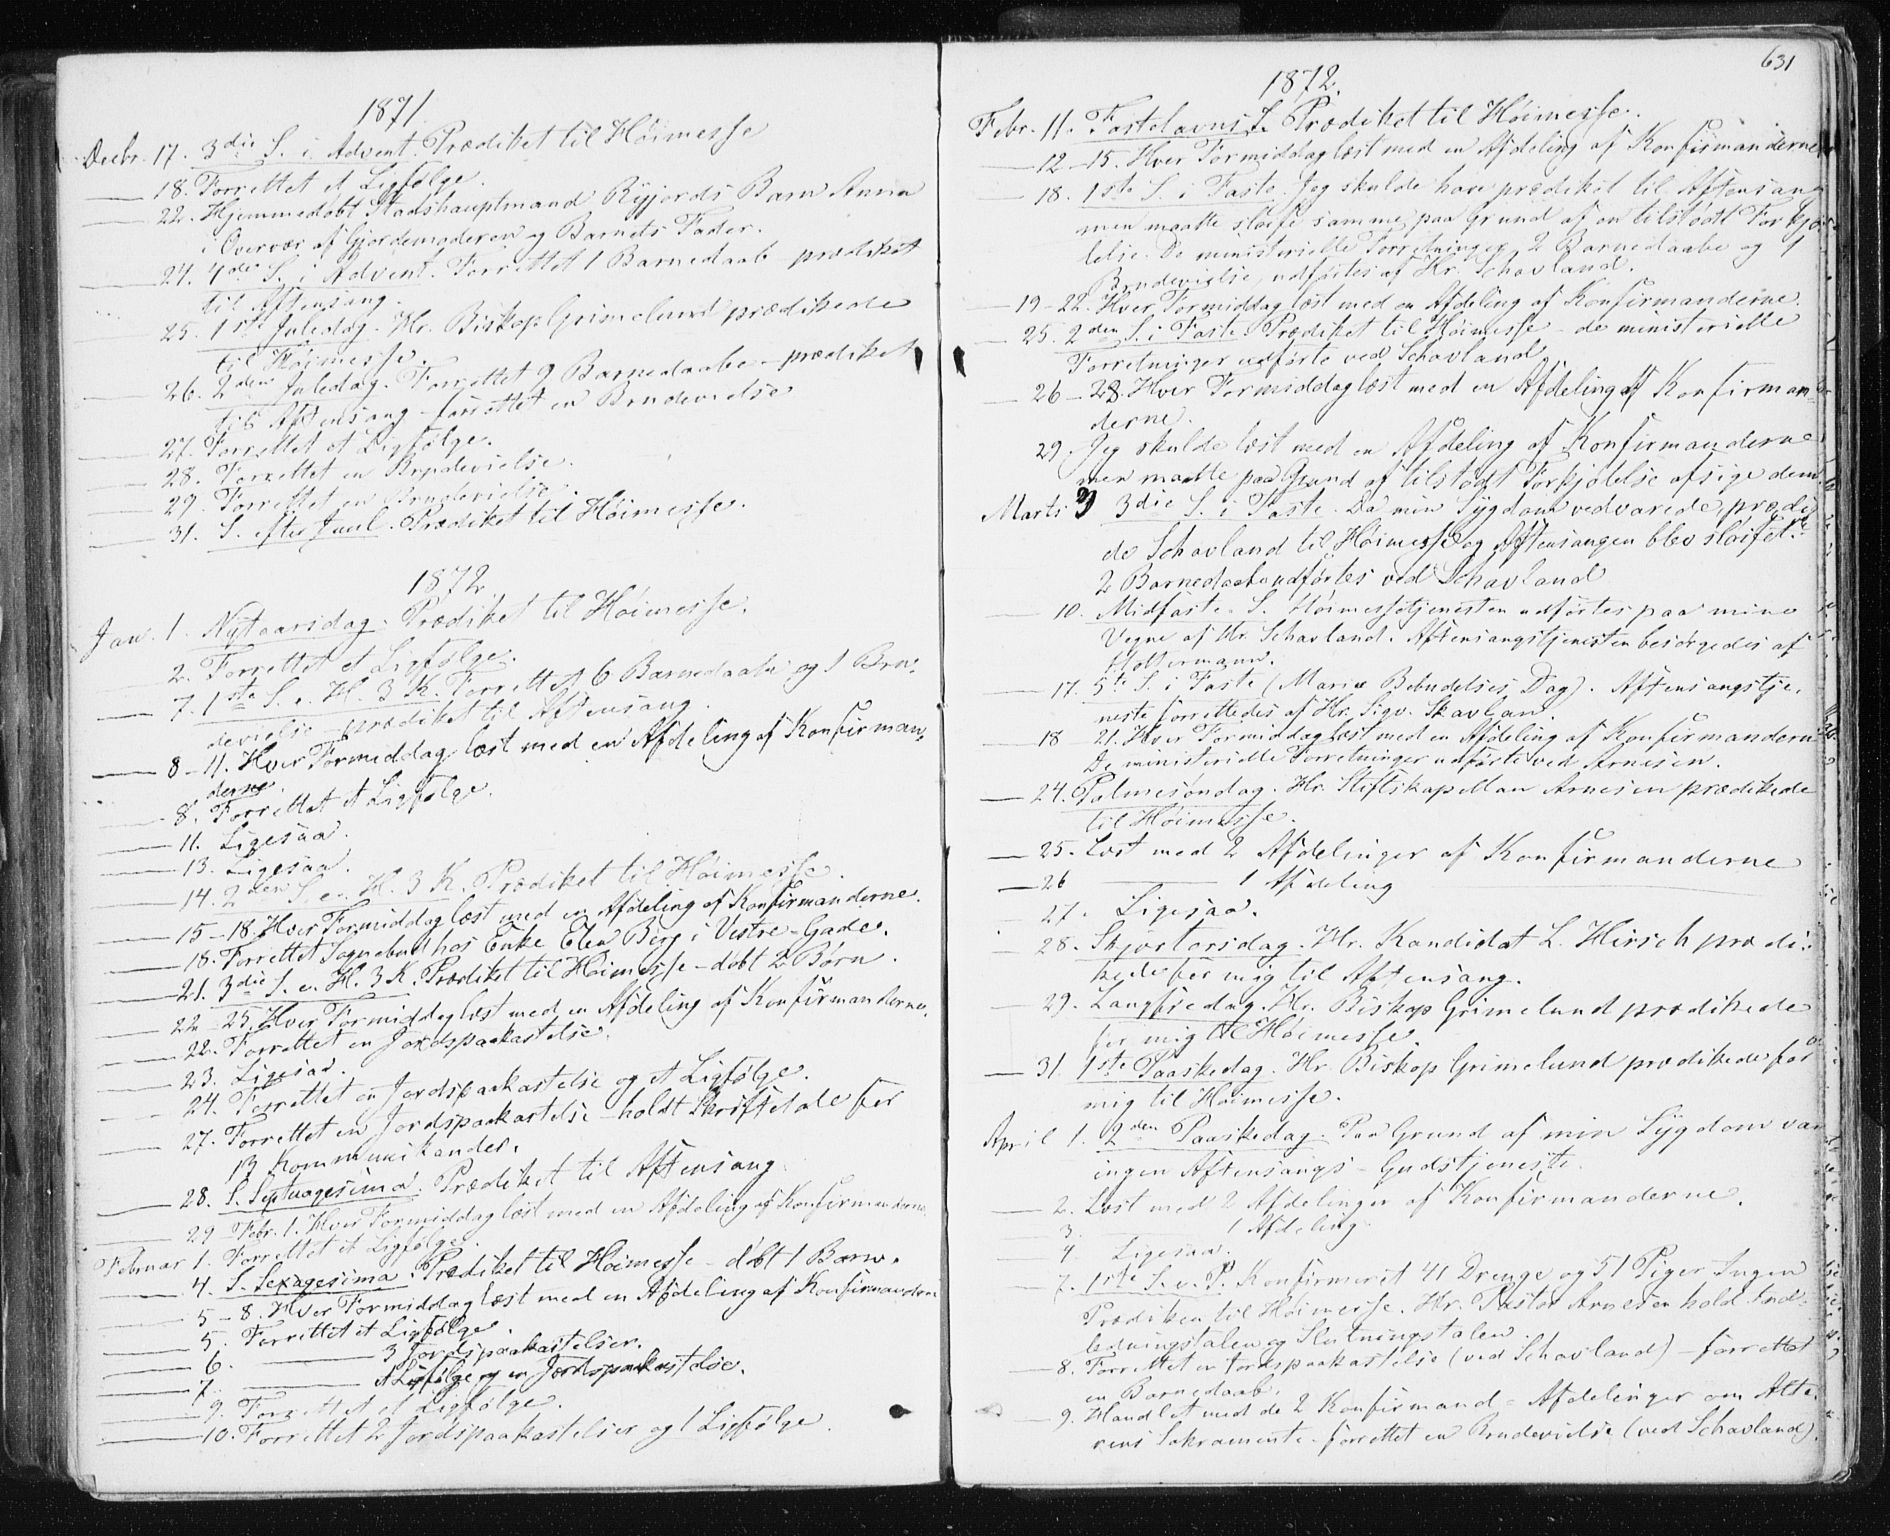 1871.
Decbr. 17. 3die S. i Advent. Prædiket til Høimesse
— 18. Forrettet et Ligfølge.
— 22. Hjemmedøbt Stadshauptmand Ryjords Barn Anna
i Overvær af Gjordemoderen og Barnets Fader.
— 24. 4de S. i Advent. Forrettet 1 Barnedaab – prædiket
til Aftensang.
— 25. 1ste Juledag. Hr. Biskop Grimelund prædikede
til Høimesse.
— 26. 2den Juledag. Forrettet 9 Barnedaabe – prædiket
til Aftensang – forrettet en Brudevielse
— 27. Forrettet et Ligfølge.
— 28. Forrettet en Brudevielse.
— 29. Forrettet en Brudevielse.
— 31. S. efter Juul. Prædiket til Høimesse.
1872.
Jan. 1. Nytaarsdag. Prædiket til Høimesse.
— 2. Forrettet et Ligfølge.
— 7. 1ste S. e. H. 3 K. Forrettet 6 Barnedaabe og 1 Bru-
devielse – prædiket til Aftensang.
— 8–11. Hver Formiddag læst med en Afdeling af Konfirman-
derne.
— 8. Forrettet et Ligfølge.
— 11. Ligesaa.
— 13. Ligesaa.
— 14. 2den S. e. H. 3 K. Prædiket til Høimesse.
— 15–18. Hver Formiddag læst med en Afdeling af Konfirmanderne.
— 18. Forrettet Sognebud hos Enke Elen Berg i Vestre-Gade.
— 21. 3die S. e. H. 3 K. Prædiket til Høimesse – døbt 2 Børn.
— 22–25. Hver Formiddag læst med en Afdeling af Konfirmanderne.
— 22. Forrettet en Jordspaakastelse.
— 23. Ligesaa.
— 24. Forrettet en Jordspaakastelse og et Ligfølge.
— 27. Forrettet en Jordspaakastelse – holdt Skriftetale for
13 Kommunikanter.
— 28. S. Septuagesima. Prædiket til Aftensang
— 29 Febr. 1. Hver Formiddag læst med en Afdeling af Konfirmanderne.
Februar 1. Forrettet et Ligfølge.
— 4. S. Sexagesima. Prædiket til Høimesse – døbt 1 Barn.
— 5–8. Hver Formiddag læst med en Afdeling af Konfirmanderne
— 5. Forrettet et Ligfølge.
— 6. — 3 Jordspaakastelser.
— 7. — et Ligfølge og en Jordspaakastelse.
— 9. Forrettet et Ligfølge.
— 10. Forrettet 2 Jordspaakastelser og 1 Ligfølge.
631
1872.
Febr. 11. Fastelavns S. Prædiket til Høimesse.
— 12–15. Hver Formiddag læst med en Afdeling af Konfirmanderne
— 18. 1ste S. i Faste. Jeg skulde have prædiket til Aftensang
men maatte sløife samme paa Grund af en tilstødt Forkjø-
lelse. De ministerielle Forretninger, 2 Barnedaabe og 1
Brudevielse, udførtes af Hr. Schavland.
— 19–22. Hver Formiddag læst med en Afdeling af Konfirmanderne.
— 25. 2den S. i Faste. Prædiket til Høimesse – de ministerielle
Forretninger udførte ved Schavland.
— 26–28. Hver Formiddag læst med en Afdeling af Konfirman-
derne.
29. Jeg skulde læst med en Afdeling af Konfirmanderne
men maatte paa Grund af tilstødt Forkjølelse afsige dem
Marts 3 3die S. i Faste. Da min Sygdom vedvarede, prædike
de Schavland til Høimesse og Aftensangen blev sløifet.
2 Barnedaabe udførtes ved Schavland
— 10. Midfaste S. Høimessetjenesten udførtes paa mine
Vegne af Hr. Schavland. Aftensangstjenesten besørgedes af
Holtermann.
— 17. 5te S. i Faste (Mariæ Bebudelses Dag). Aftensangstje-
neste forrettedes af Hr. Sigv. Skavlan.
— 18 21. Hver Formiddag læst med en Afdeling af Konfirmanderne
De ministerielle Forretninger udførte ved Arnesen.
— 24. Palmesøndag. Hr. Stiftskapellan Arnesen prædikede
til Høimesse.
— 25. Læst med 2 Afdelinger af Konfirmanderne
— 26 — 1 Afdeling
— 27. Ligesaa.
— 28. Skjærtorsdag. Hr. Kandidat L. Hirsch prædi-
kede for mig til Aftensang.
— 29. Langfredag. Hr. Biskop Grimelund prædikede
for mig til Høimesse.
— 31. 1ste Paaskedag. Hr. Biskop Grimelund prædikede for
mig til Høimesse.
April 1. 2den Paaskedag. Paa Grund af min Sygdom var
ingen Aftensangs-Gudstjeneste.
— 2. Læst med 2 Afdelinger af Konfirmanderne.
3. — 1 Afdeling
4. Ligesaa.
— 7. 1ste S. e. P. Konfirmeret 41 Drenge og 51 Piger. Ingen
Prædiken til Høimesse. Hr. Pastor Arnesen holdt Ind-
ledningstalen og Slutningstalen.
8. Forrettet en Jordspaakastelse (ved Schavland) – forrettet
en Barnedaab.
— 9. Handlet med de 2 Konfirmand-Afdelinger om Alte-
rens Sakramente – forrettet en Brudevielse (ved Schavland).